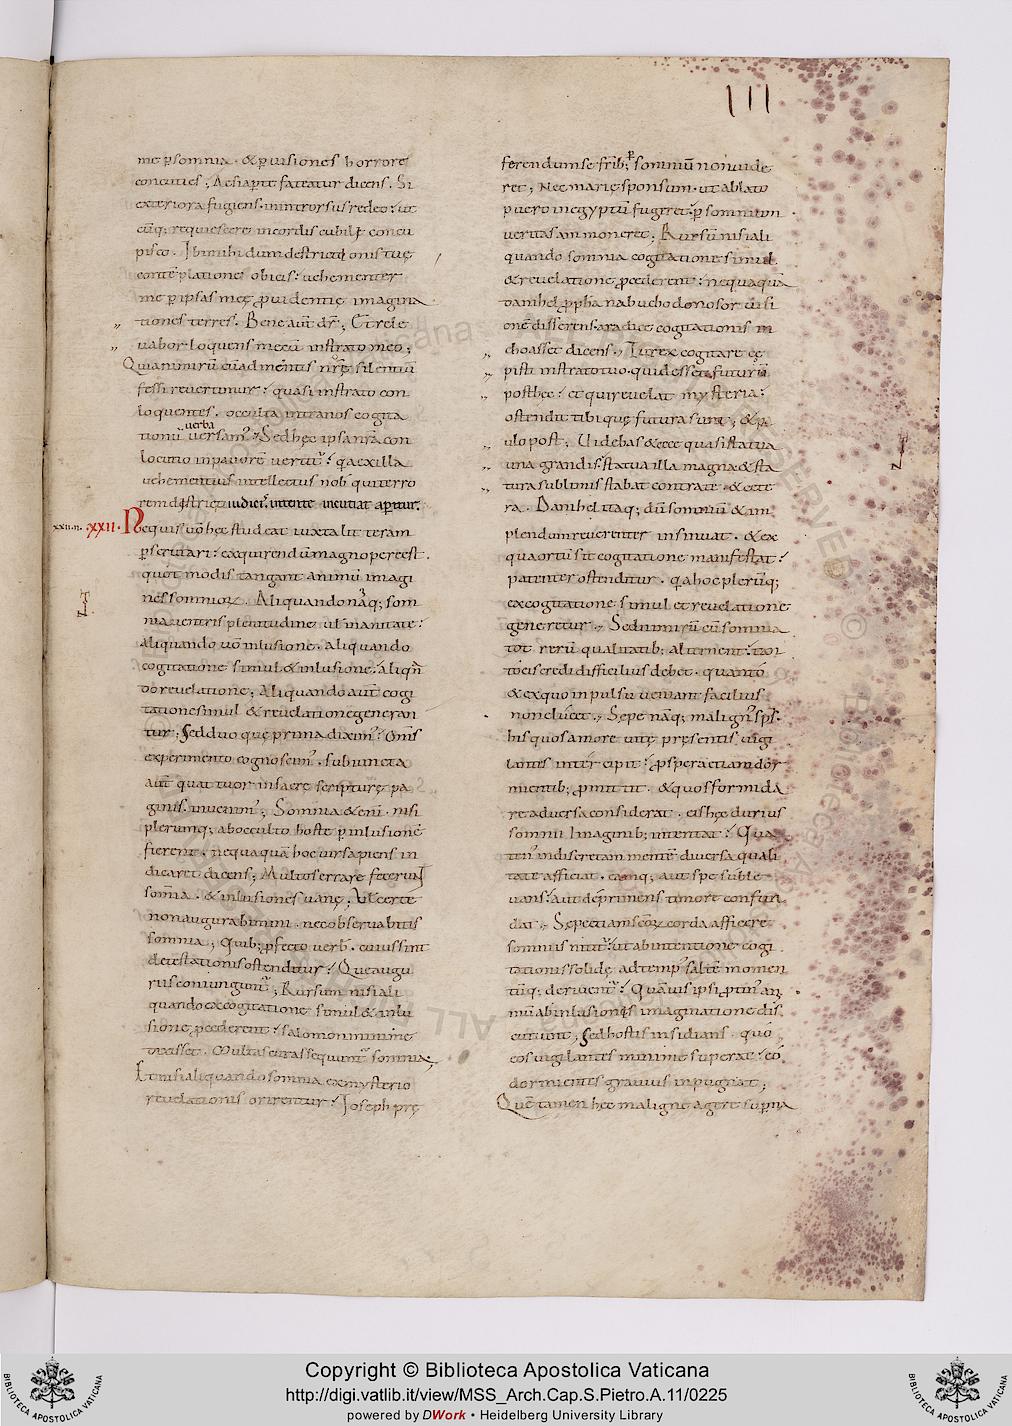 III
me p somnia. & p uisiones horrore
concuties; Ac si aperte fateatur dicens. Si
exteriora fugiens. in introrsus redeo: ut
cūq; requiescere in cordis cubili concu
pisco. Ibi mihi dum destructionis tuę
contēplationē obicis: uehementer
me p ipsas meę puidentię imagina
tiones terres. Bene aut dr; Et rele
uabor loquens mecū in strato meo;
Quia nimirū cū ad mentis nrę silentiū
fessi reuertimur: quasi in strato con
loquentes. occulta intra nos cogita
tionū uerba uersam'; Sed hęc ipsa nra con
locutio in pauorē uertit': q̄a ex illa
uehementius intellectus nob qui terro
rem districti iudicii intente incutiat aperitur.
XXII. Nequis uo hęc studeat iuxta litteram
pscrutari: exquirendū magnopere est.
quot modis tangant animū imagi
nes somnioꝝ. Aliquando nāq; som
nia uentris plenitudine ut inanitate:
Aliquando uo inlusione. aliquando
cogitatione simul & inlusione. aliqn
do reuelatione; Aliquando aut cogi
tatione simul & reuelatione generan
tur; Sed duo quę prima diximus. oms
experimento cognoscim'. subiuncta
aut quattuor in sacrę scripturę pa
ginis inuenim'; Somnia & enī nisi
plerumq; ab occulto hoste p inlusionē
fierent. nequaquā hoc uir sapiens in
dicaret dicens; Multos errare fecerunt
somnia. & inlusiones uanę; Vel certe
non augurabimini. nec obseruabitis
somnia; Quib; pfecto uerb. cuius sint
detestationis ostenditur: Quę augu
riis coniungunt'; Rursum nisi ali
quando ex cogitatione simul & inlu
sione pcederent: salomon minime
dixisset. Multas curas sequunt' somnia;
Et nisi aliquando somnia ex mysterio
reuelationis orirentur: Ioseph prę
ferendum se frib; p somniū non uide
ret; Nec marię sponsum. ut ablato
puero in egyptū fugeret: p somnium
ueritas ammoneret; Rursū nisi ali
quando somnia cogitatione simul
& reuelatione pcederent: nequaquā
danihel ppha nabuchodonosor uisi
onē disserens. a radice cogitationis in
choasset dicens; Tu rex cogitare cę
pisti in strato tuo. quid esset futurū
post hęc: et qui reuelat mysteria:
ostendit tibi quę futura sunt; & pa
ulo post; Uidebas & ecce quasi statua
una grandis. statua illa magna & sta
tura sublimis stabat contra te. & cete
ra. Danihel itaq; dū somniū & im
plendum reuerenter insinuat. & ex
qua ortū sit cogitatione manifestat:
patenter ostenditur. q̄a hoc plerūq;
ex cogitatione simul et reuelatione
generetur; Sed nimirū cū somnia
tot rerū qualitatib; alternent: tan
to eis credi difficilius debet. quanto
& ex quo inpulsu ueniant facilius
non elucet; Sępe nāq; malign' sps.
his quos amore uitę pręsentis uigi
lantes intercipit: pspera etiam dor
mientib; pmittit. & quos formida
re aduersa considerat. eis hęc durius
somnii imaginib; intentat: Qua
ten' indiscretam mentē diuersa quali
tate afficiat. eamq; aut spe suble
uans: aut deprimens timore confun
dat; Sępe etiam scoꝝ corda afficere
somniis nitit': ut ab intentione cogi
tationis solidę. ad temp' saltē momen
tūq; deriuent': Quāuis ipsi ptin' an
imū ab inlusionis imaginatione dis
cutiunt; Sed hostis insidians. quo
eos uigilantes minime superat: eo
dormientes grauius inpugnat;
Quē tamen hęc maligne agere supna
Copyright © Biblioteca Apostolica Vaticana
http://digi.vatlib.it/view/MSS_Arch.Cap.S.Pietro.A.11/0225
powered by DWork • Heidelberg University Library